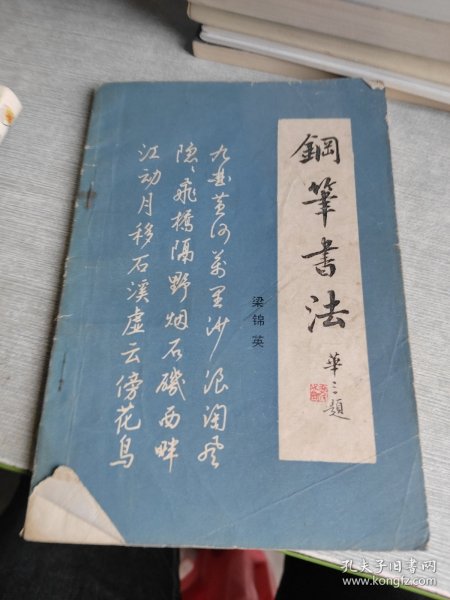 鋼筆書法
華三川題
梁锦英
九曲黄河萬里沙浪淘风
隐〻飛橋隔野烟石磯西畔
江动月移石溪虚云傍花鸟
孔夫子旧书网
www.kongfz.com